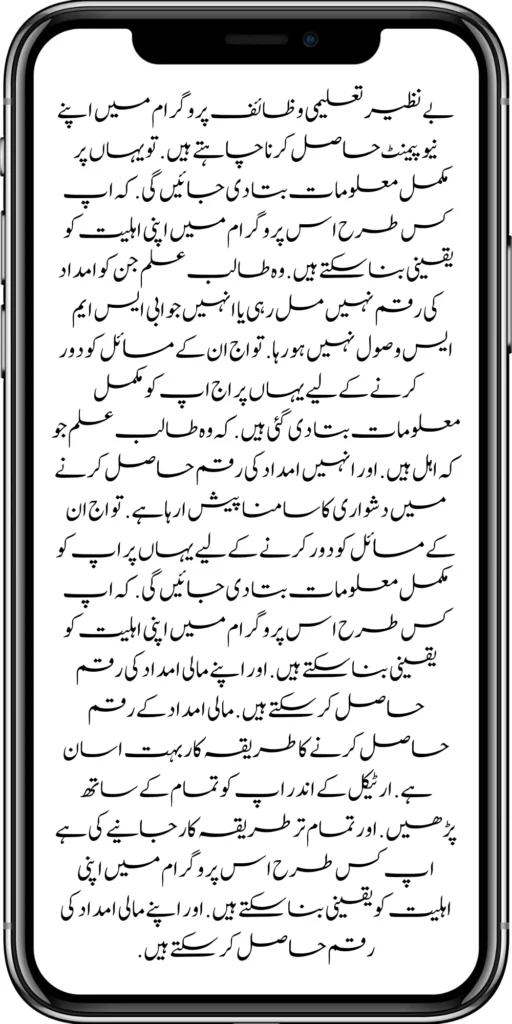 بے نظیر تعلیمی وظائف پروگرام میں اپنے
نیو پیمنٹ حاصل کرنا چاہتے ہیں. تو یہاں پر
مکمل معلومات بتا دی جائیں گی. کہ اپ
کس طرح اس پروگرام میں اپنی اہلیت کو
یقینی بنا سکتے ہیں. وہ طالب علم جن کو امداد
کی رقم نہیں مل رہی یا انہیں جوابی ایس ایم
ایس وصول نہیں ہو رہا. تو اج ان کے مسائل کو دور
کرنے کے لیے یہاں پر اج اپ کو مکمل
معلومات بتا دی گئی ہیں. کہ وہ طالب علم جو
کہ اہل ہیں. اور انہیں امداد کی رقم حاصل کرنے
میں دشواری کا سامنا پیش ارہا ہے. تو اج ان
کے مسائل کو دور کرنے کے لیے یہاں پر اپ کو
مکمل معلومات بتا دی جائیں گی. کہ اپ
کس طرح اس پروگرام میں اپنی اہلیت کو
یقینی بنا سکتے ہیں. اور اپنے مالی امداد کی رقم
حاصل کر سکتے ہیں. مالی امداد کے رقم
حاصل کرنے کا طریقہ کار بہت اسان
ہے. ارٹیکل کے اندر اپ کو تمام کے ساتھ
پڑھیں. اور تمام تر طریقہ کار جانیے کی ہے
اپ کس طرح اس پروگرام میں اپنی
اہلیت کو یقینی بنا سکتے ہیں. اور اپنے مالی امداد کی
رقم حاصل کر سکتے ہیں.